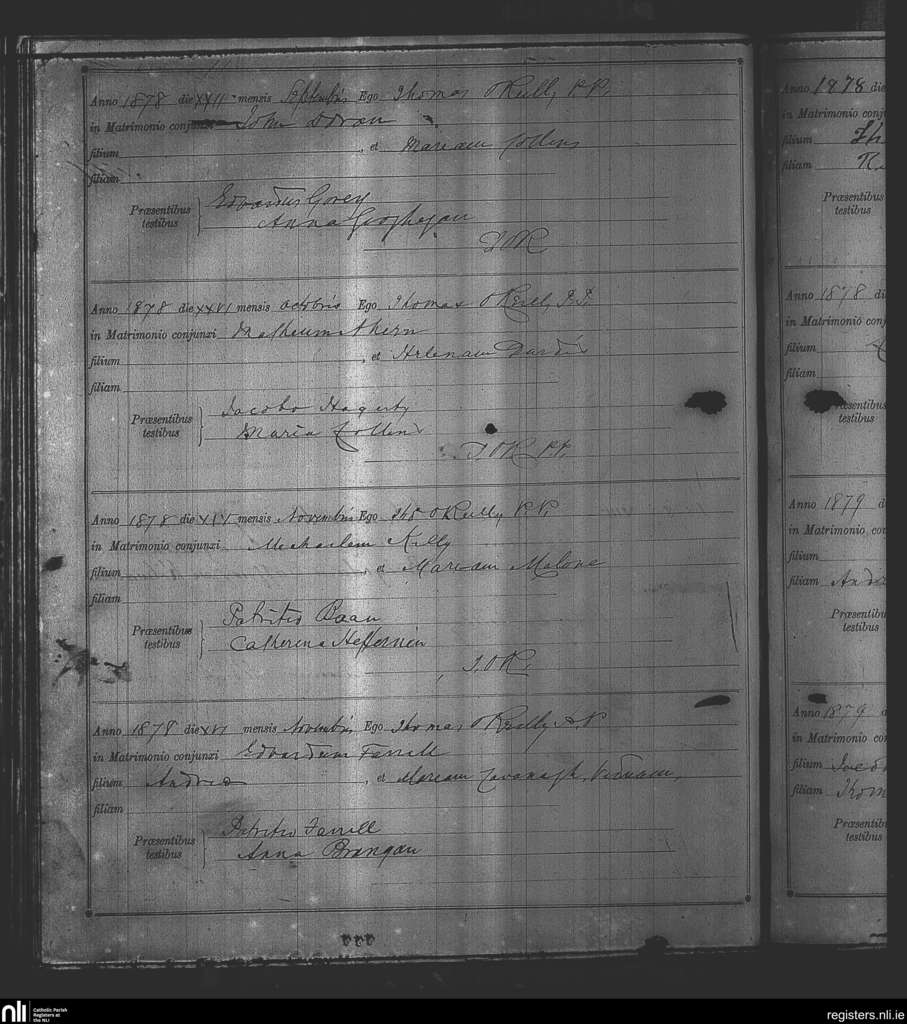 Anno 1878 die XXII mensis Septembris Ego Thomas O'Reilly P.P.
in Matrimonio conjunxi John Doran
filium , et Mariam Collins
filiam
Præsentibus testibus Edvardus Gorey
Anna Geoghegan
T.O'R.
Anno 1878 die XXVI mensis Octobris Ego Thomas O'Reilly P.P.
in Matrimonio conjunxi Matheum Ahern
filium , et Helenam
filiam
Præsentibus testibus Jacobo Hagerty
Maria Collins
T.O'R. P.P.
Anno 1878 die XIV mensis Novembris Ego Ths O'Reilly P.P.
in Matrimonio conjunxi Michaelem Kelly
filium , et Mariam Malone
filiam
Præsentibus testibus Patritio
Catherina Heffernan
T.O'R.
Anno 1878 die XVI mensis Novembris Ego Thomas O'Reilly P.P.
in Matrimonio conjunxi Edvardum Farrell
filium Andreo , et Mariam Cavanagh, Viduam,
filiam
Præsentibus testibus Patritio Farrell
Anna Brangan
Anno 1878 die
in Matrimonio conj
filium
filiam
Præsentibus
testibus
Anno 1878 di
in Matrimonio conj
filium
filiam
Præsentibus
testibus
Anno 1879 d
in Matrimonio co
filium
filiam
Præsentibu
testibus
Anno 1879 d
in Matrimonio co
filium
filiam Thom
Præsentib
testibus
nli
Catholic Parish
Registers at
the NLI
registers.nli.ie